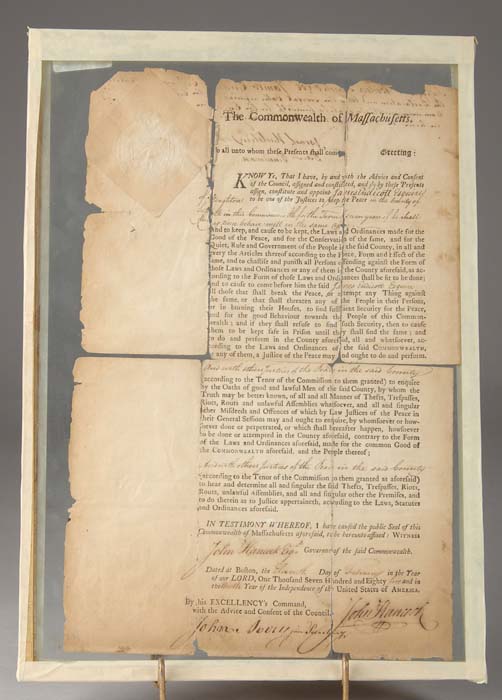 The Commonwealth of Massachusetts.
o all unto whom these Presents shall come, Greeting:
KNOW Ye, That I have, by and with the Advice and Consent
of the Council, assigned and constituted, and do by these Presents
assign, constitute and appoint James Endicott Esquire
to be one of the Justices to keep the Peace in the County of
in the Commonwealth for the Term of seven years if he shall
so long behave well in the same
And to keep, and cause to be kept, the Laws and Ordinances made for the
Good of the Peace, and for the Conservation of the same, and for the
Quiet, Rule and Government of the People in the said County, in all and
every the Articles thereof according to the Force, Form and Effect of the
same, and to chastise and punish all Persons offending against the Form of
those Laws and Ordinances or any of them in the County aforesaid, as ac-
cording to the Form of those Laws and Ordinances shall be fit to be done;
and to cause to come before him the said James Endicott Esquire
all those that shall break the Peace, or attempt any Thing against
the same, or that shall threaten any of the People in their Persons,
or in burning their Houses, to find sufficient Security for the Peace,
and for the good Behaviour towards the People of this Common-
wealth; and if they shall refuse to find such Security, then to cause
them to be kept safe in Prison until they shall find the same; and
to do and perform in the County aforesaid, all, and whatsoever, ac-
cording to the Laws and Ordinances of the said COMMONWEALTH,
or any of them, a Justice of the Peace may and ought to do and perform.
And with other Justices of the Peace in the said County
(according to the Tenor of the Commission to them granted) to enquire
by the Oaths of good and lawful Men of the said County, by whom the
Truth may be better known, of all and all Manner of Thefts, Trespasses,
Riots, Routs and unlawful Assemblies whatsoever, and all and singular
other Misdeeds and Offences of which by Law Justices of the Peace in
their General Sessions may and ought to enquire, by whomsoever or how-
soever done or perpetrated, or which shall hereafter happen, howsoever
to be done or attempted in the County aforesaid, contrary to the Form
of the Laws and Ordinances aforesaid, made for the common Good of
the COMMONWEALTH aforesaid, and the People thereof;
And with other Justices of the Peace in the said County
(according to the Tenor of the Commission to them granted as aforesaid)
to hear and determine all and singular the said Thefts, Trespasses, Riots,
Routs, unlawful Assemblies, and all and singular other the Premises, and
to do therein as to Justice appertaineth, according to the Laws, Statutes
and Ordinances aforesaid.
IN TESTIMONY WHEREOF, I have caused the public Seal of this
Commonwealth of Massachusetts aforesaid, to be hereunto affixed: WITNESS
John Hancock Esqr. Governor of the said Commonwealth.
Dated at Boston, the Day of in the Year
of our LORD, One Thousand Seven Hundred and Eighty and in
Year of the Independence of the United States of AMERICA.
By his EXCELLENCY'S Command,
with the Advice and Consent of the Council
John Hancock
John Avery